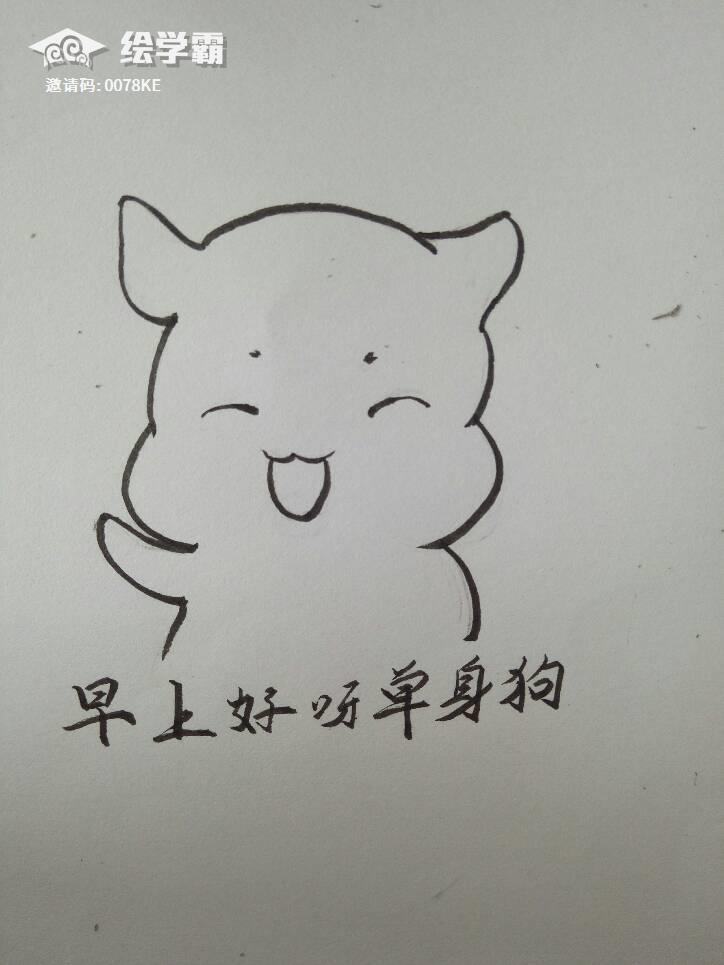 绘学霸
邀请码: 0078KE
早上好呀单身狗